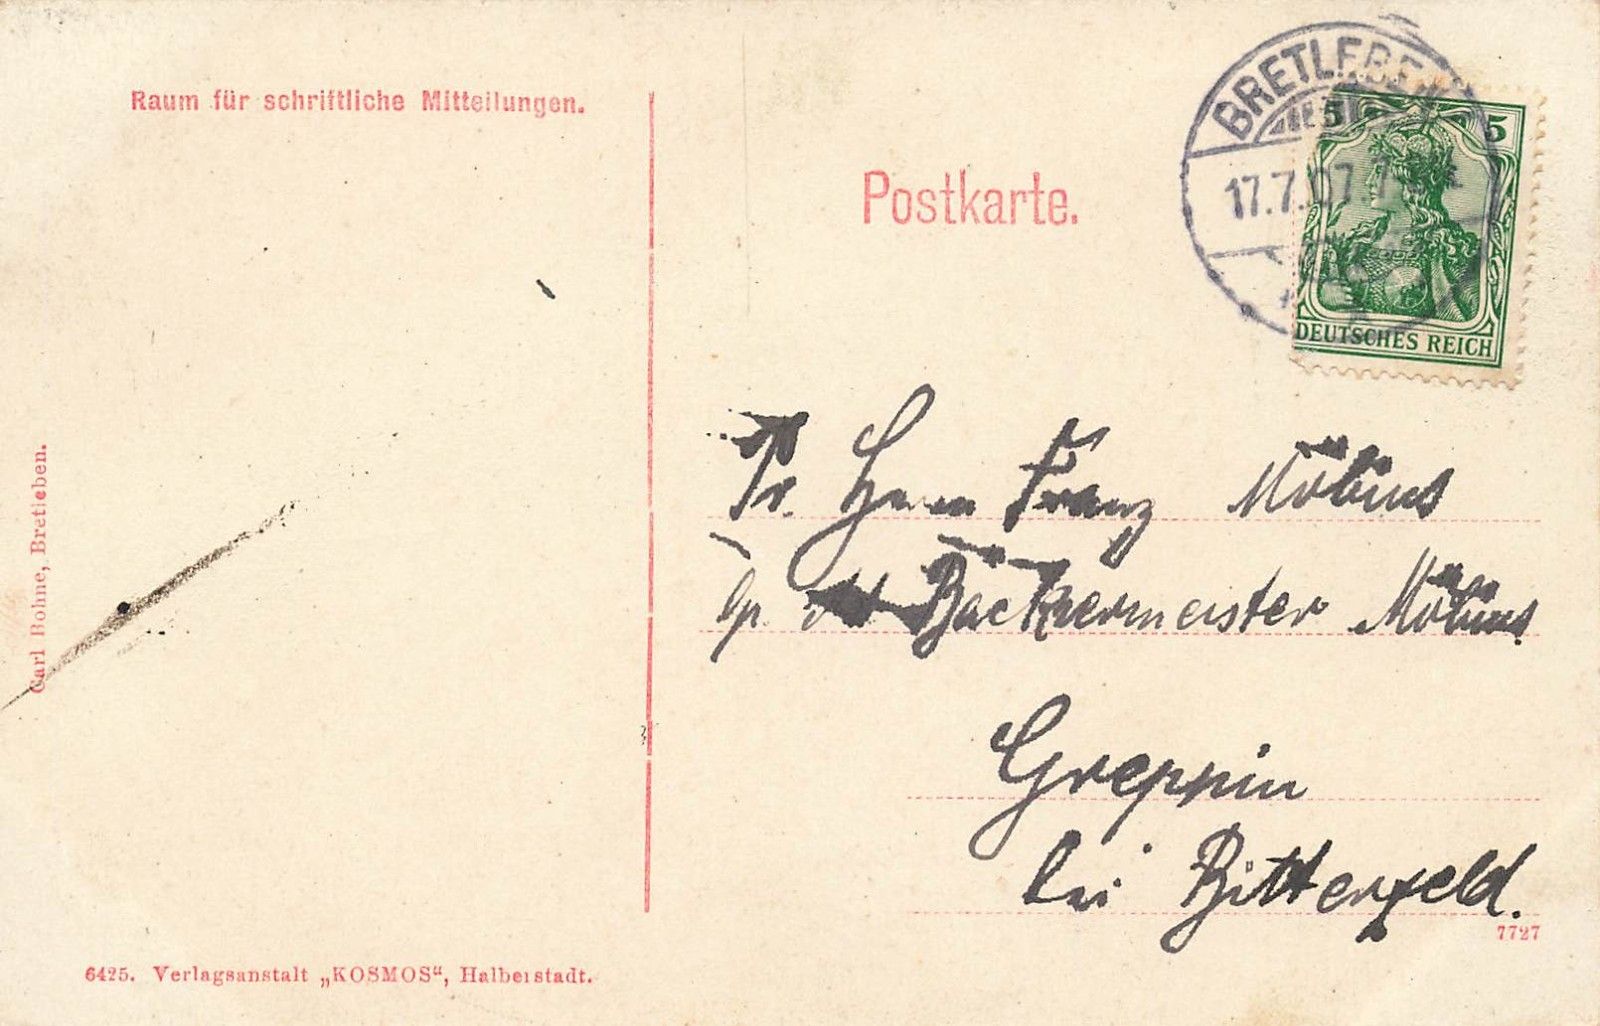 Raum für schriftliche Mitteilungen.
Postkarte.
BRETLEBEN
17.7.07.7
5 5
DEUTSCHES REICH
Herrn Franz Möbius
Bäckermeister Möbius
Greppin
bei Bitterfeld.
7727
Carl Bohne, Bretleben.
6425. Verlagsanstalt „KOSMOS“, Halberstadt.